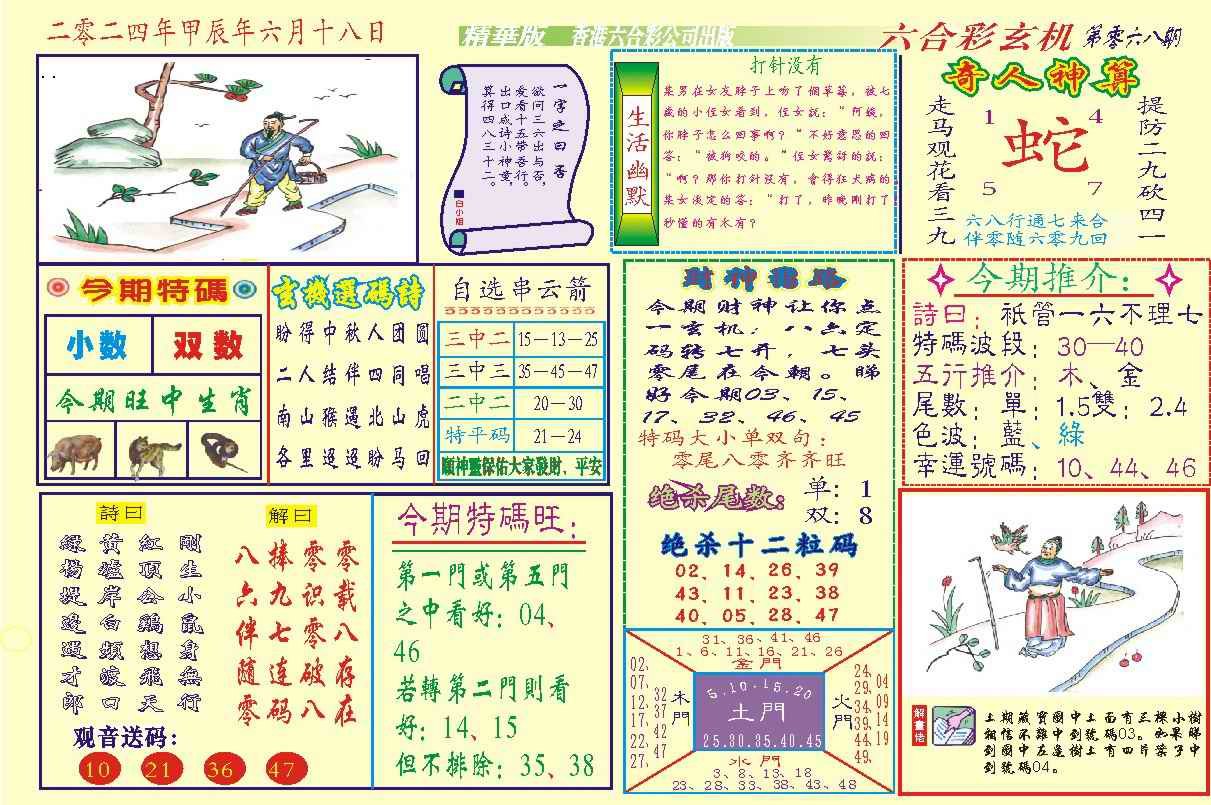 二零二四年甲辰年六月十八日
精華版 香港六合彩公司出版
六合彩玄机 第零六八期
一字之曰:否
欲问三六出与否,
爱看十五带吞行。
出口成诗小神童,
算得四八三十二。
白小姐
生活幽默
打针没有
某男在女友脖子上吻了個草莓,被七
歲的小侄女看到,侄女說:“阿姨,
你脖子怎么回事啊?“不好意思的回
答:“被狗咬的。”侄女驚訝的說:
“啊?那你打針沒有,會得狂犬病的
某女淡定的答:“打了,昨晚剛打了
秒懂的有木有?
奇人神算
走马观花看三九
提防二九砍四一
1 4
蛇
5 7
六八行通七来合
伴零随六零九回
今期特碼
小数 双数
今期旺中生肖
玄機選碼詩
盼得中秋人团圆
二人结伴四同唱
南山猴遇北山虎
各里迢迢盼马回
自选串云箭
三中二 15—13—25
三中三 35—45—47
二中二 20—30
特平码 21—24
願神靈保佑大家發財、平安
財神電路
今期财神让你点
一玄机:八六定
码转七开,七头
零尾在今朝。睇
好今期03、15、
17、32、46、45
特码大小单双句:
零尾八零齐齐旺
绝杀尾数: 单: 1
双: 8
绝杀十二粒码
02、14、26、39
43、11、23、38
40、05、28、47
今期推介:
詩曰: 祇管一六不理七
特碼波段: 30—40
五行推介: 木、金
尾數: 單: 1.5雙: 2.4
色波: 藍、綠
幸運號碼: 10、44、46
詩曰
剛生小鼠身無行
紅頂公鷄想飛天
黃埔岸白頻波口
綠楊堤邊過才郎
解曰
零载八存在
零识零破八
捧九七连码
八六伴随零
观音送码:
10 21 36 47
今期特碼旺:
第一門或第五門
之中看好: 04、
46
若轉第二門則看
好: 14、15
但不排除: 35、38
31、36、41、46
1、6、11、16、21、26
金門
02、07、12、17、22、27、
32、37、42、47
木門
5.10.15.20
土門
25.30.35.40.45
火門
24、29、34、39、44、49、
04、09、14、19
水門
3、8、13、18
23、28、33、38、43、48
解畫佬
上期藏寶圖中上面有三棵小樹
相信不難中到號碼03。如果睇
到圖中左邊樹上有四片葉子中
到號碼04。